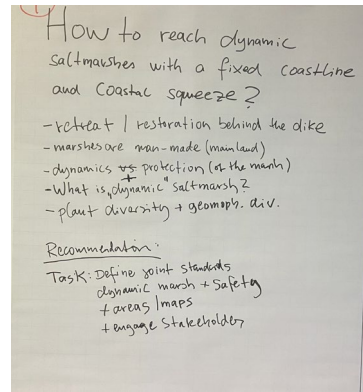 1
How to reach dynamic
saltmarshes with a fixed coastline
and coastal squeeze?
- retreat / restoration behind the dike
- marshes are man-made (mainland)
- dynamics vs + protection (of the marsh)
- What is „dynamic" saltmarsh?
- plant diversity + geomoph. div.
Recommendation:
Task: Define joint standards
dynamic marsh + safety
+ areas / maps
+ engage stakeholders